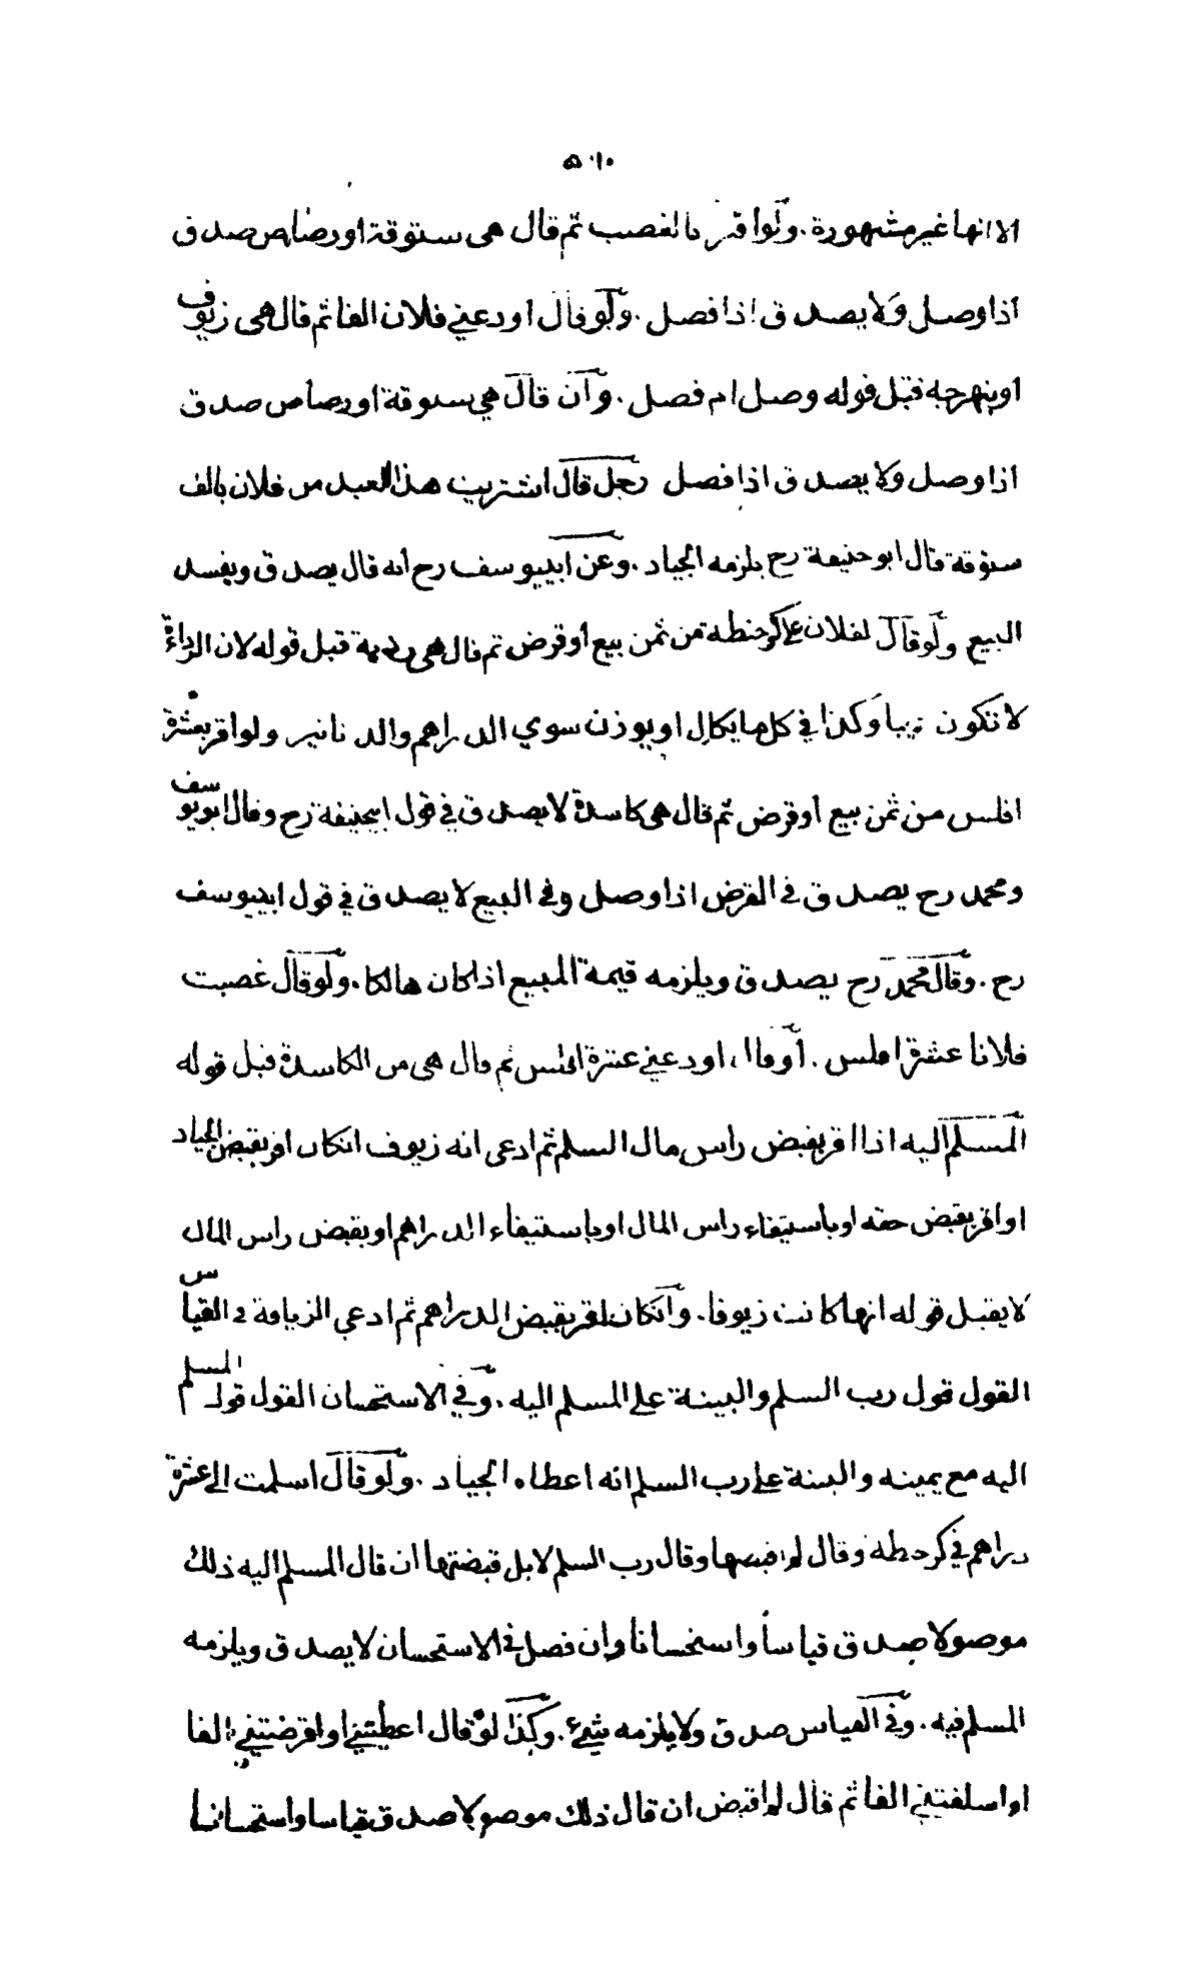 ٥٠١٠
الا انها غير مشهورة . ولو اقر بالغصب ثم قال هى ستوقة او رصاص صدق
اذا وصل ولا يصدق اذا فصل . ولو قال اودعني فلان الفا ثم قال هى زيوف
او بنهرجه قبل قوله وصل ام فصل . وان قال هي ستوقة او رصاص صدق
اذا وصل ولا يصدق اذا فصل رجل قال اشتريت هذا العبد من فلان بالف
ستوقة قال ابو حنيفة رح يلزمه الجياد . وعن ابييوسف رح انه قال يصدق ويفسد
البيع ولو قال لفلان على كر حنطة من ثمن بيع أو قرض ثم قال هى ردية قبل قوله لان الرداءة
لا تكون عيبا وكذا في كل ما يكال او يوزن سوي الدراهم والدنانير ولو اقر بعشرة
افلس من ثمن بيع أو قرض ثم قال هى كاسدة لا يصدق في قول ابيحنيفة رح وقال ابو يوسف
ومحمد رح يصدق في القرض اذا وصل وفي البيع لا يصدق في قول ابييوسف
رح . وقال محمد رح يصدق ويلزمه قيمة المبيع اذا كان هالكا . ولو قال غصبت
فلانا عشرة افلس . أو قال اودعني عشرة افلس ثم قال هى من الكاسدة قبل قوله
المسلم اليه اذا اقر بقبض راس مال السلم ثم ادعى انه زيوف انكان اقر بقبض الجياد
او اقر بقبض حقه او باستيفاء راس المال او باستيفاء الدراهم او بقبض راس المال
لا يقبل قوله انها كانت زيوفا . وانكان اقر بقبض الدراهم ثم ادعي الزيافة في القياس
القول قول رب السلم والبينة على المسلم اليه . وفي الاستحسان القول قول المسلم
اليه مع يمينه والبينة على رب السلم انه اعطاه الجياد . ولو قال اسلمت الي عشرة
دراهم في كر حنطة وقال لم اقبضها وقال رب السلم لا بل قبضتها ان قال المسلم اليه ذلك
موصولا صدق قياساً واستحسانا وان فصل في الاستحسان لا يصدق ويلزمه
المسلم فيه . وفي القياس صدق ولا يلزمه شيء . وكذا لو قال اعطيتني او اقرضتني الفا
او اسلفتني الفا ثم قال لم اقبض ان قال ذلك موصولا صدق قياسا واستحسانا